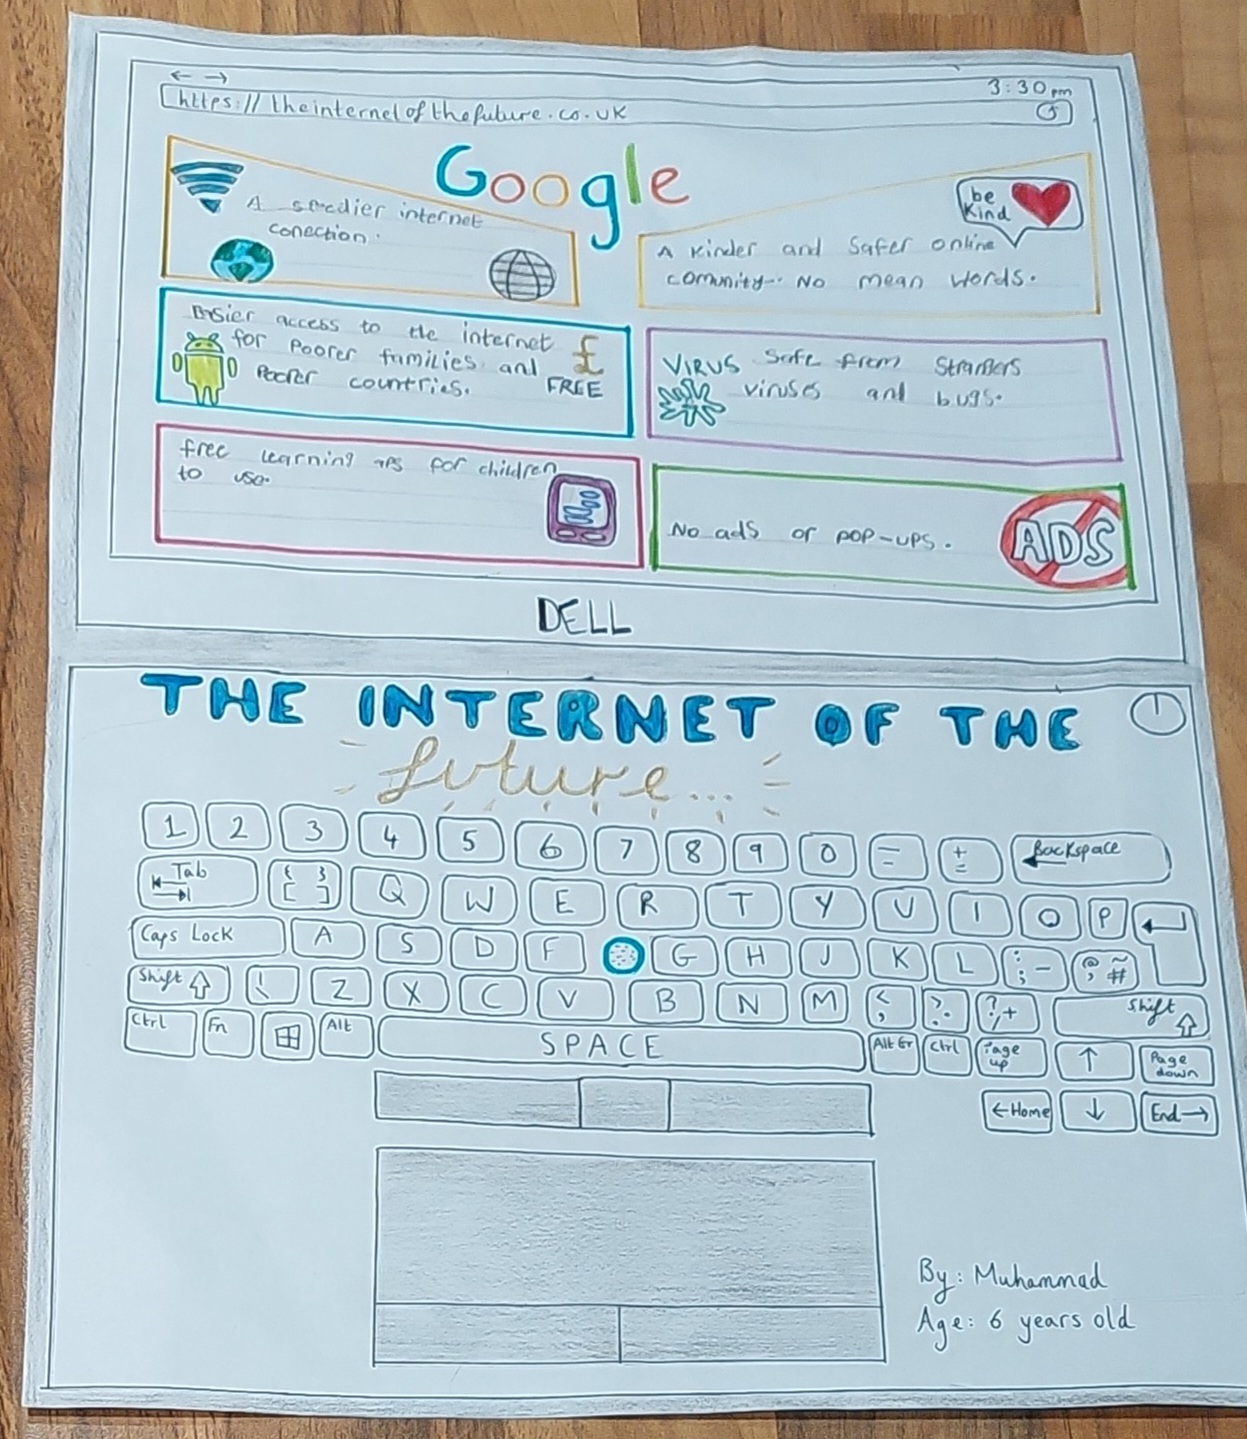 ← →
3:30pm
https://theinternetofthefuture.co.uk
Google
A speedier internet
conection.
be
kind
A kinder and safer online
comunity. No mean words.
Easier access to the internet
for poorer families and
poorer countries.
£
FREE
VIRUS safe from strangers
viruses and bugs.
free learning aps for children
to use.
No ads or pop-ups.
ADS
DELL
THE INTERNET OF THE
future...
1 2 3 4 5 6 7 8 9 0 - _ + = Backspace
Tab { } [ ] Q W E R T Y U I O P
Caps Lock A S D F G H J K L : ; - @ ' ~ #
Shift ! \ Z X C V B N M < , > . ? / + Shift
Ctrl Fn Alt SPACE Alt Gr Ctrl Page up ↑ Page down
←Home ↓ End→
By: Muhammad
Age: 6 years old